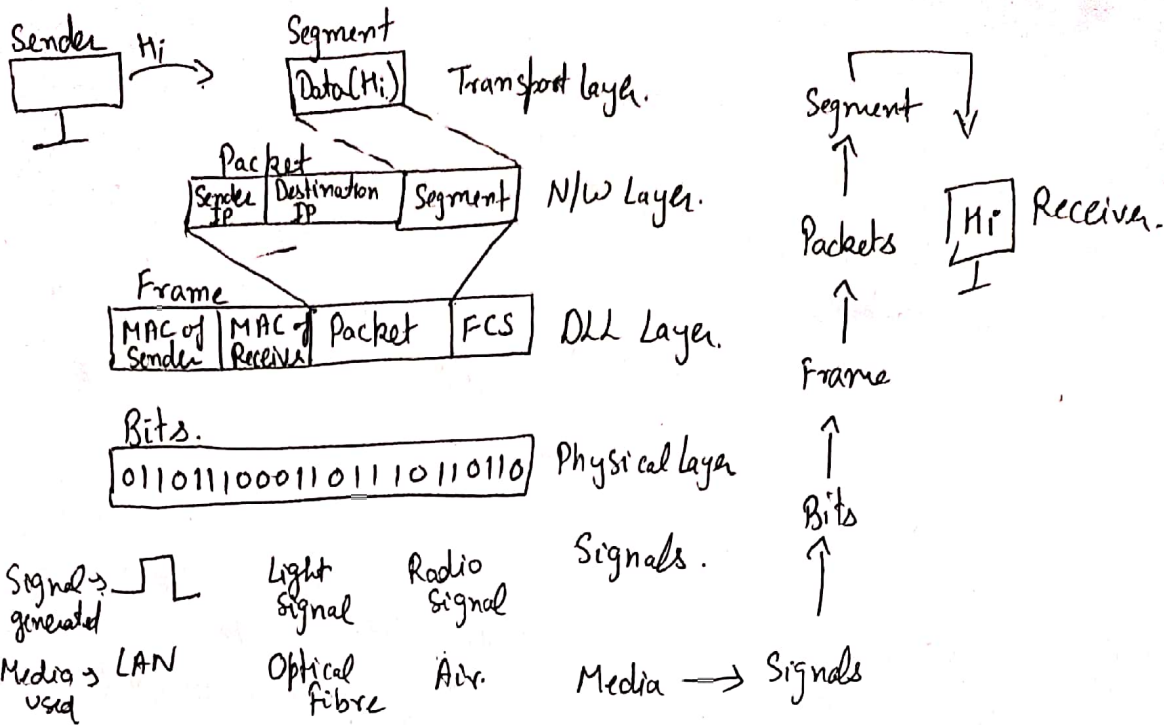 Sender
Hi
Segment
Data(Hi)
Transport Layer.
Packet
Sender IP
Destination IP
Segment
N/W Layer.
Frame
MAC of Sender
MAC of Receiver
Packet
FCS
DLL Layer.
Bits.
01101110001101110110110
Physical Layer
Signal generated
Light Signal
Radio Signal
Signals.
Media used
LAN
Optical fibre
Air.
Media
Signals
Bits
Frame
Packets
Segment
Hi
Receiver.